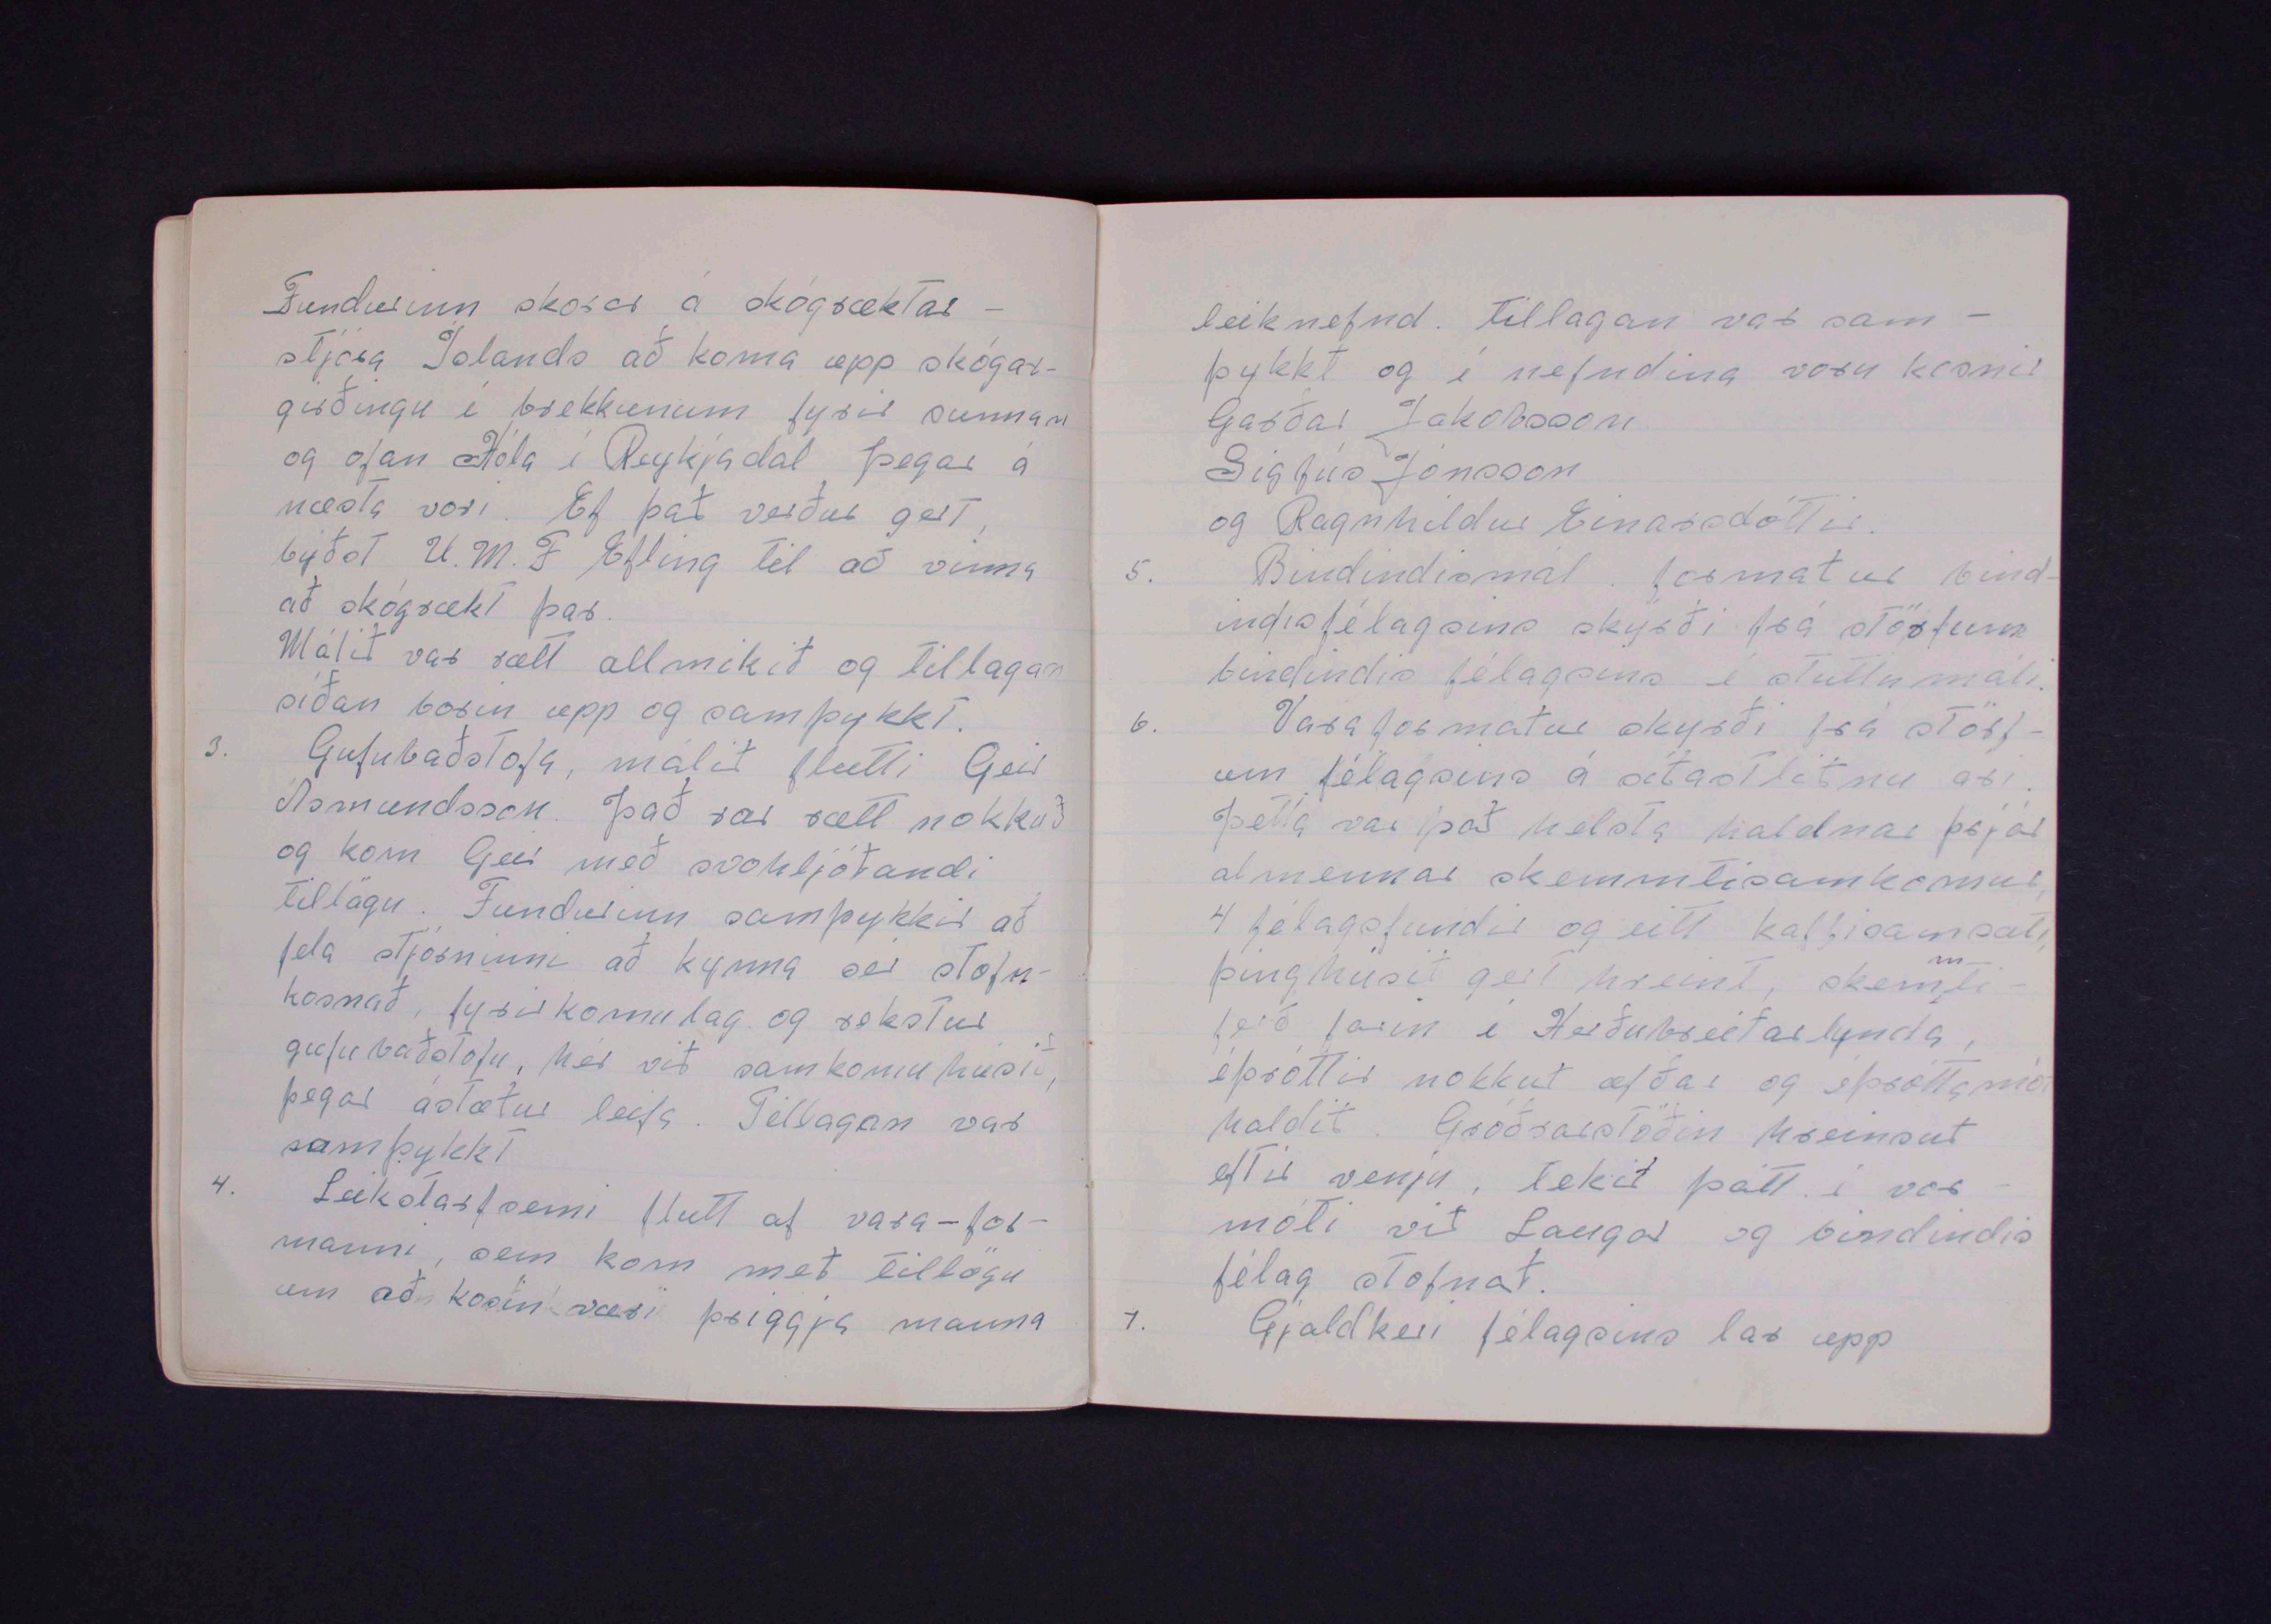 Fundurinn skorar á skógræktar-
stjóra Íslands að koma upp skógar-
girðingu í brekkunum fyrir sunnan
og ofan Hóla í Reykjadal þegar á
næsta vori. Ef það verður gert,
býðst U.M.F Efling til að vinna
að skógrækt þar.
Málið var rætt allmikið og tillagan
síðan borin upp og samþykkt.
3. Gufubaðstofa, málið flutti Geir
Ásmundsson. Það var rætt nokkuð
og kom Geir með svohljóðandi
tillögu. Fundurinn samþykkir að
fela stjórninni að kynna sér stofn-
kosnað, fyrirkomulag og rekstur
gufubaðstofu, hér við samkomuhúsið,
þegar ástæður leifa. Tillagan var
samþykkt
4. Leikstarfsemi flutt af vara-for-
manni, sem kom með tillögu
um að kosin væri þriggja manna
leiknefnd. Tillagan var sam-
þykkt og í nefndina voru kosnir
Garðar Jakobsson
Sigfús Jónsson
og Ragnhildur Einarsdóttir.
5. Bindindismál. formaður bind-
indisfélagsins skýrði frá störfum
bindindis félagsins í stuttu máli.
6. Varaformaður skyrði frá störf-
um félagsins á síðastliðnu ári.
Þetta var það helsta haldnar þrjár
almennar skemmtisamkomur,
4 félagsfundir og eitt kaffisamsæti,
þinghúsið gert hreint, skemmti-
ferð farin í Herðubreiðarlynda,
íþróttir nokkuð æfðar og íþróttamót
haldið. Gróðrarstöðin hreinsuð
eftir venju, tekið þátt í vor-
móti við Laugar og bindindis
félag stofnað.
7. Gjaldkeri félagsins las upp